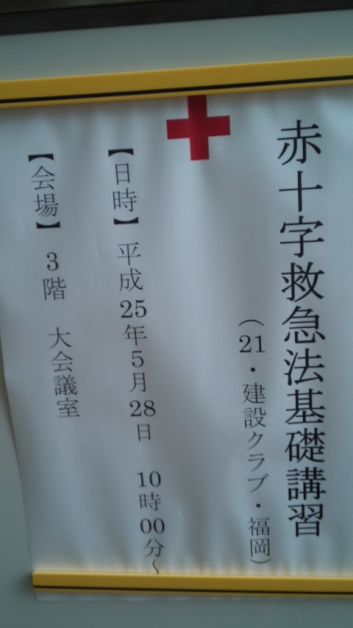 赤十字救急法基礎講習
（21・建設クラブ・福岡）
【日時】 平成25年5月28日 10時00分～
【会場】 3階 大会議室